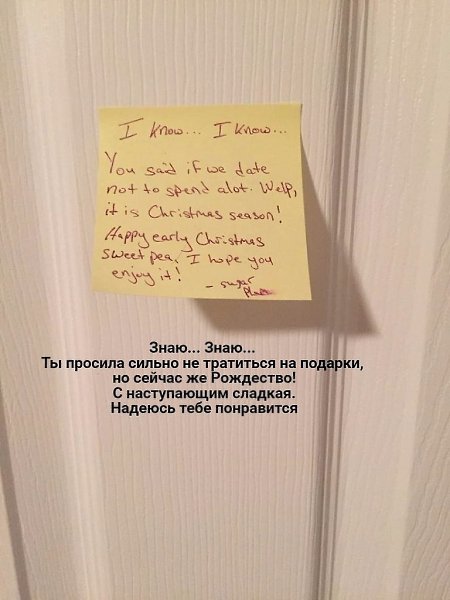 I know... I know...
You said if we date
not to spend alot. Welp,
it is Christmas season!
Happy early Christmas
sweet pea. I hope you
enjoy it!
- sugar
Знаю... Знаю...
Ты просила сильно не тратиться на подарки,
но сейчас же Рождество!
С наступающим сладкая.
Надеюсь тебе понравится